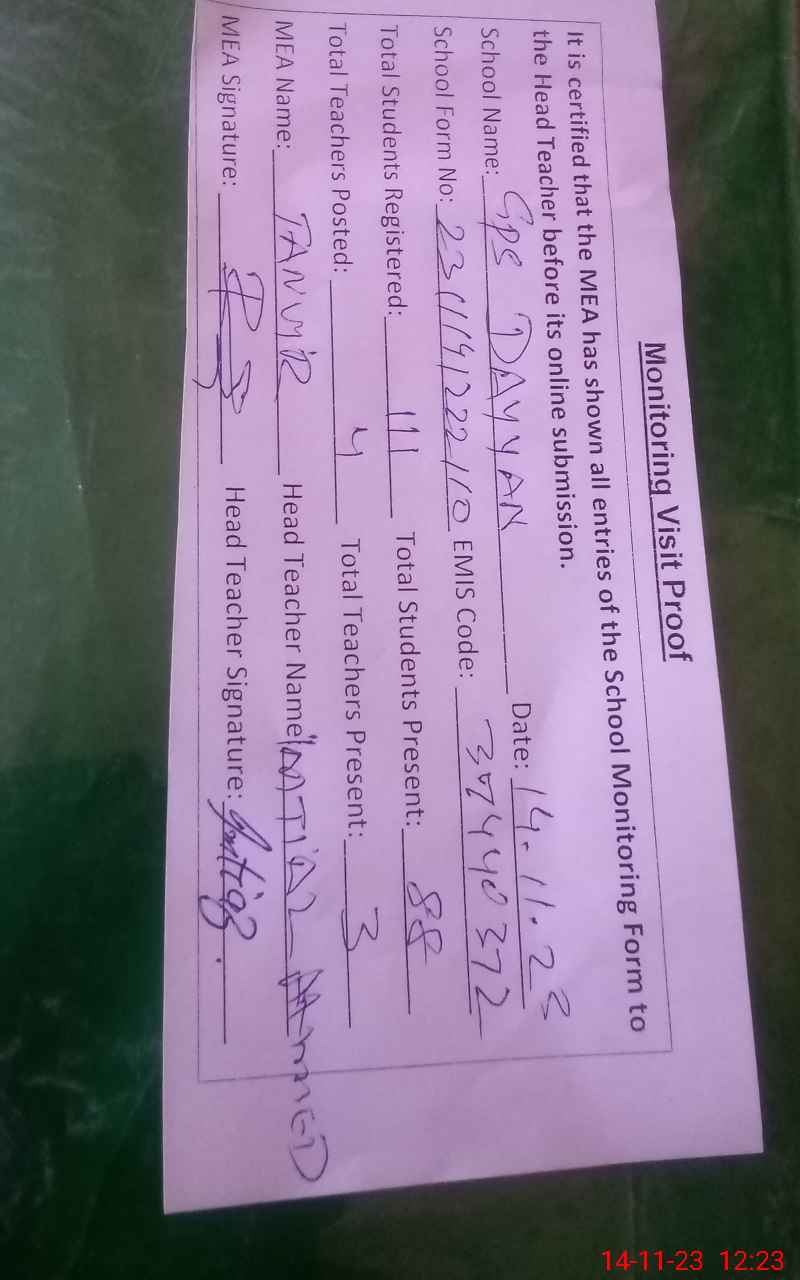 Monitoring Visit Proof
It is certified that the MEA has shown all entries of the School Monitoring Form to
the Head Teacher before its online submission.
School Name: GPS DAYYAN Date: 14.11.23
School Form No: EMIS Code: 37440372
Total Students Registered: 111 Total Students Present: 88
Total Teachers Posted: 4 Total Teachers Present: 3
MEA Name: TANVIR Head Teacher Name: IMTIAZ AHMED
MEA Signature: Head Teacher Signature: Imtiaz.
14-11-23 12:23